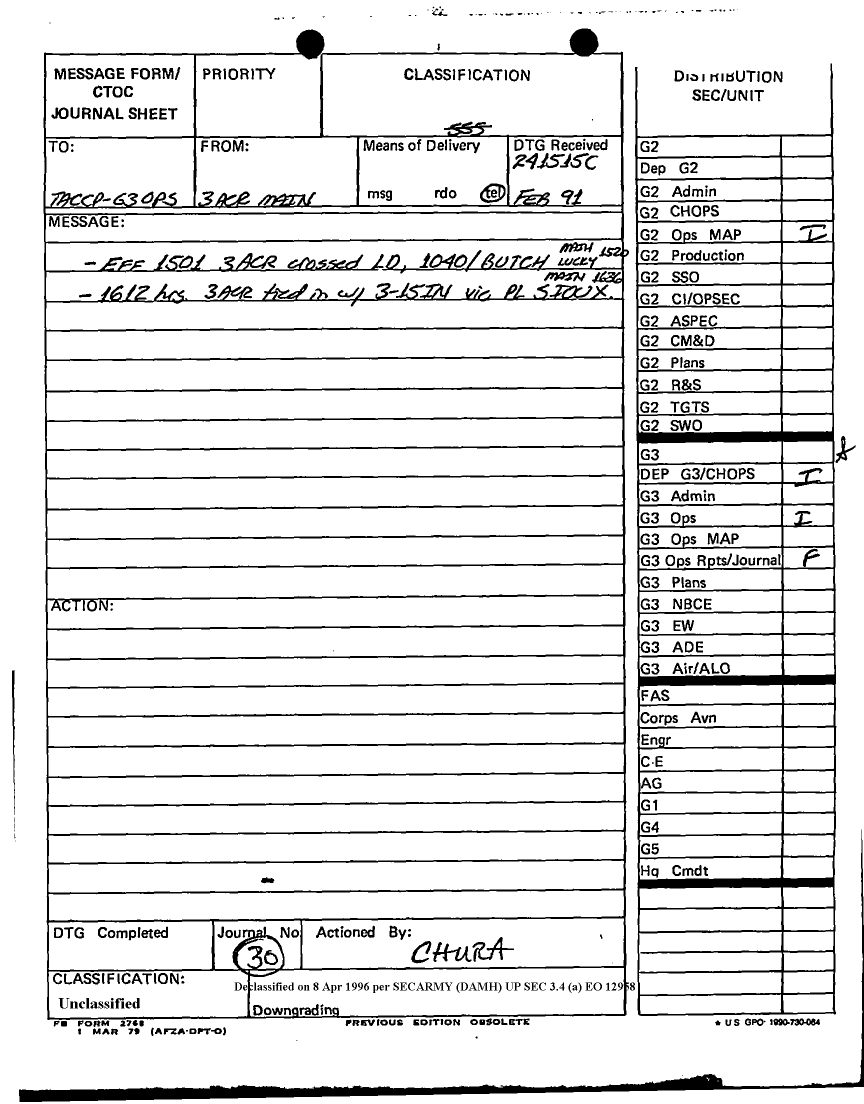 MESSAGE FORM/
CTOC
JOURNAL SHEET
PRIORITY
CLASSIFICATION
555
TO:
TACCP-G3 OPS
FROM:
3 ACR MAIN
Means of Delivery
msg rdo tel
DTG Received
241515C
FEB 91
MESSAGE:
- EFF 1501 3ACR crossed LD, 1040/BUTCH MAIN LUCKY 1520
- 1612 hrs. 3ACR tied in w/ 3-15IN vic PL SIOUX. MAIN 1636
ACTION:
DTG Completed
Journal No
30
Actioned By:
CHURA
CLASSIFICATION:
Unclassified
Declassified on 8 Apr 1996 per SECARMY (DAMH) UP SEC 3.4 (a) EO 12958
Downgrading
FB FORM 2768
1 MAR 79 (AFZA-DPT-O)
PREVIOUS EDITION OBSOLETE
DISTRIBUTION
SEC/UNIT
G2
Dep G2
G2 Admin
G2 CHOPS
G2 Ops MAP I
G2 Production
G2 SSO
G2 CI/OPSEC
G2 ASPEC
G2 CM&D
G2 Plans
G2 R&S
G2 TGTS
G2 SWO
G3
DEP G3/CHOPS I
G3 Admin
G3 Ops I
G3 Ops MAP
G3 Ops Rpts/Journal F
G3 Plans
G3 NBCE
G3 EW
G3 ADE
G3 Air/ALO
FAS
Corps Avn
Engr
C-E
AG
G1
G4
G5
Hq Cmdt
★ U S GPO- 1990-730-064